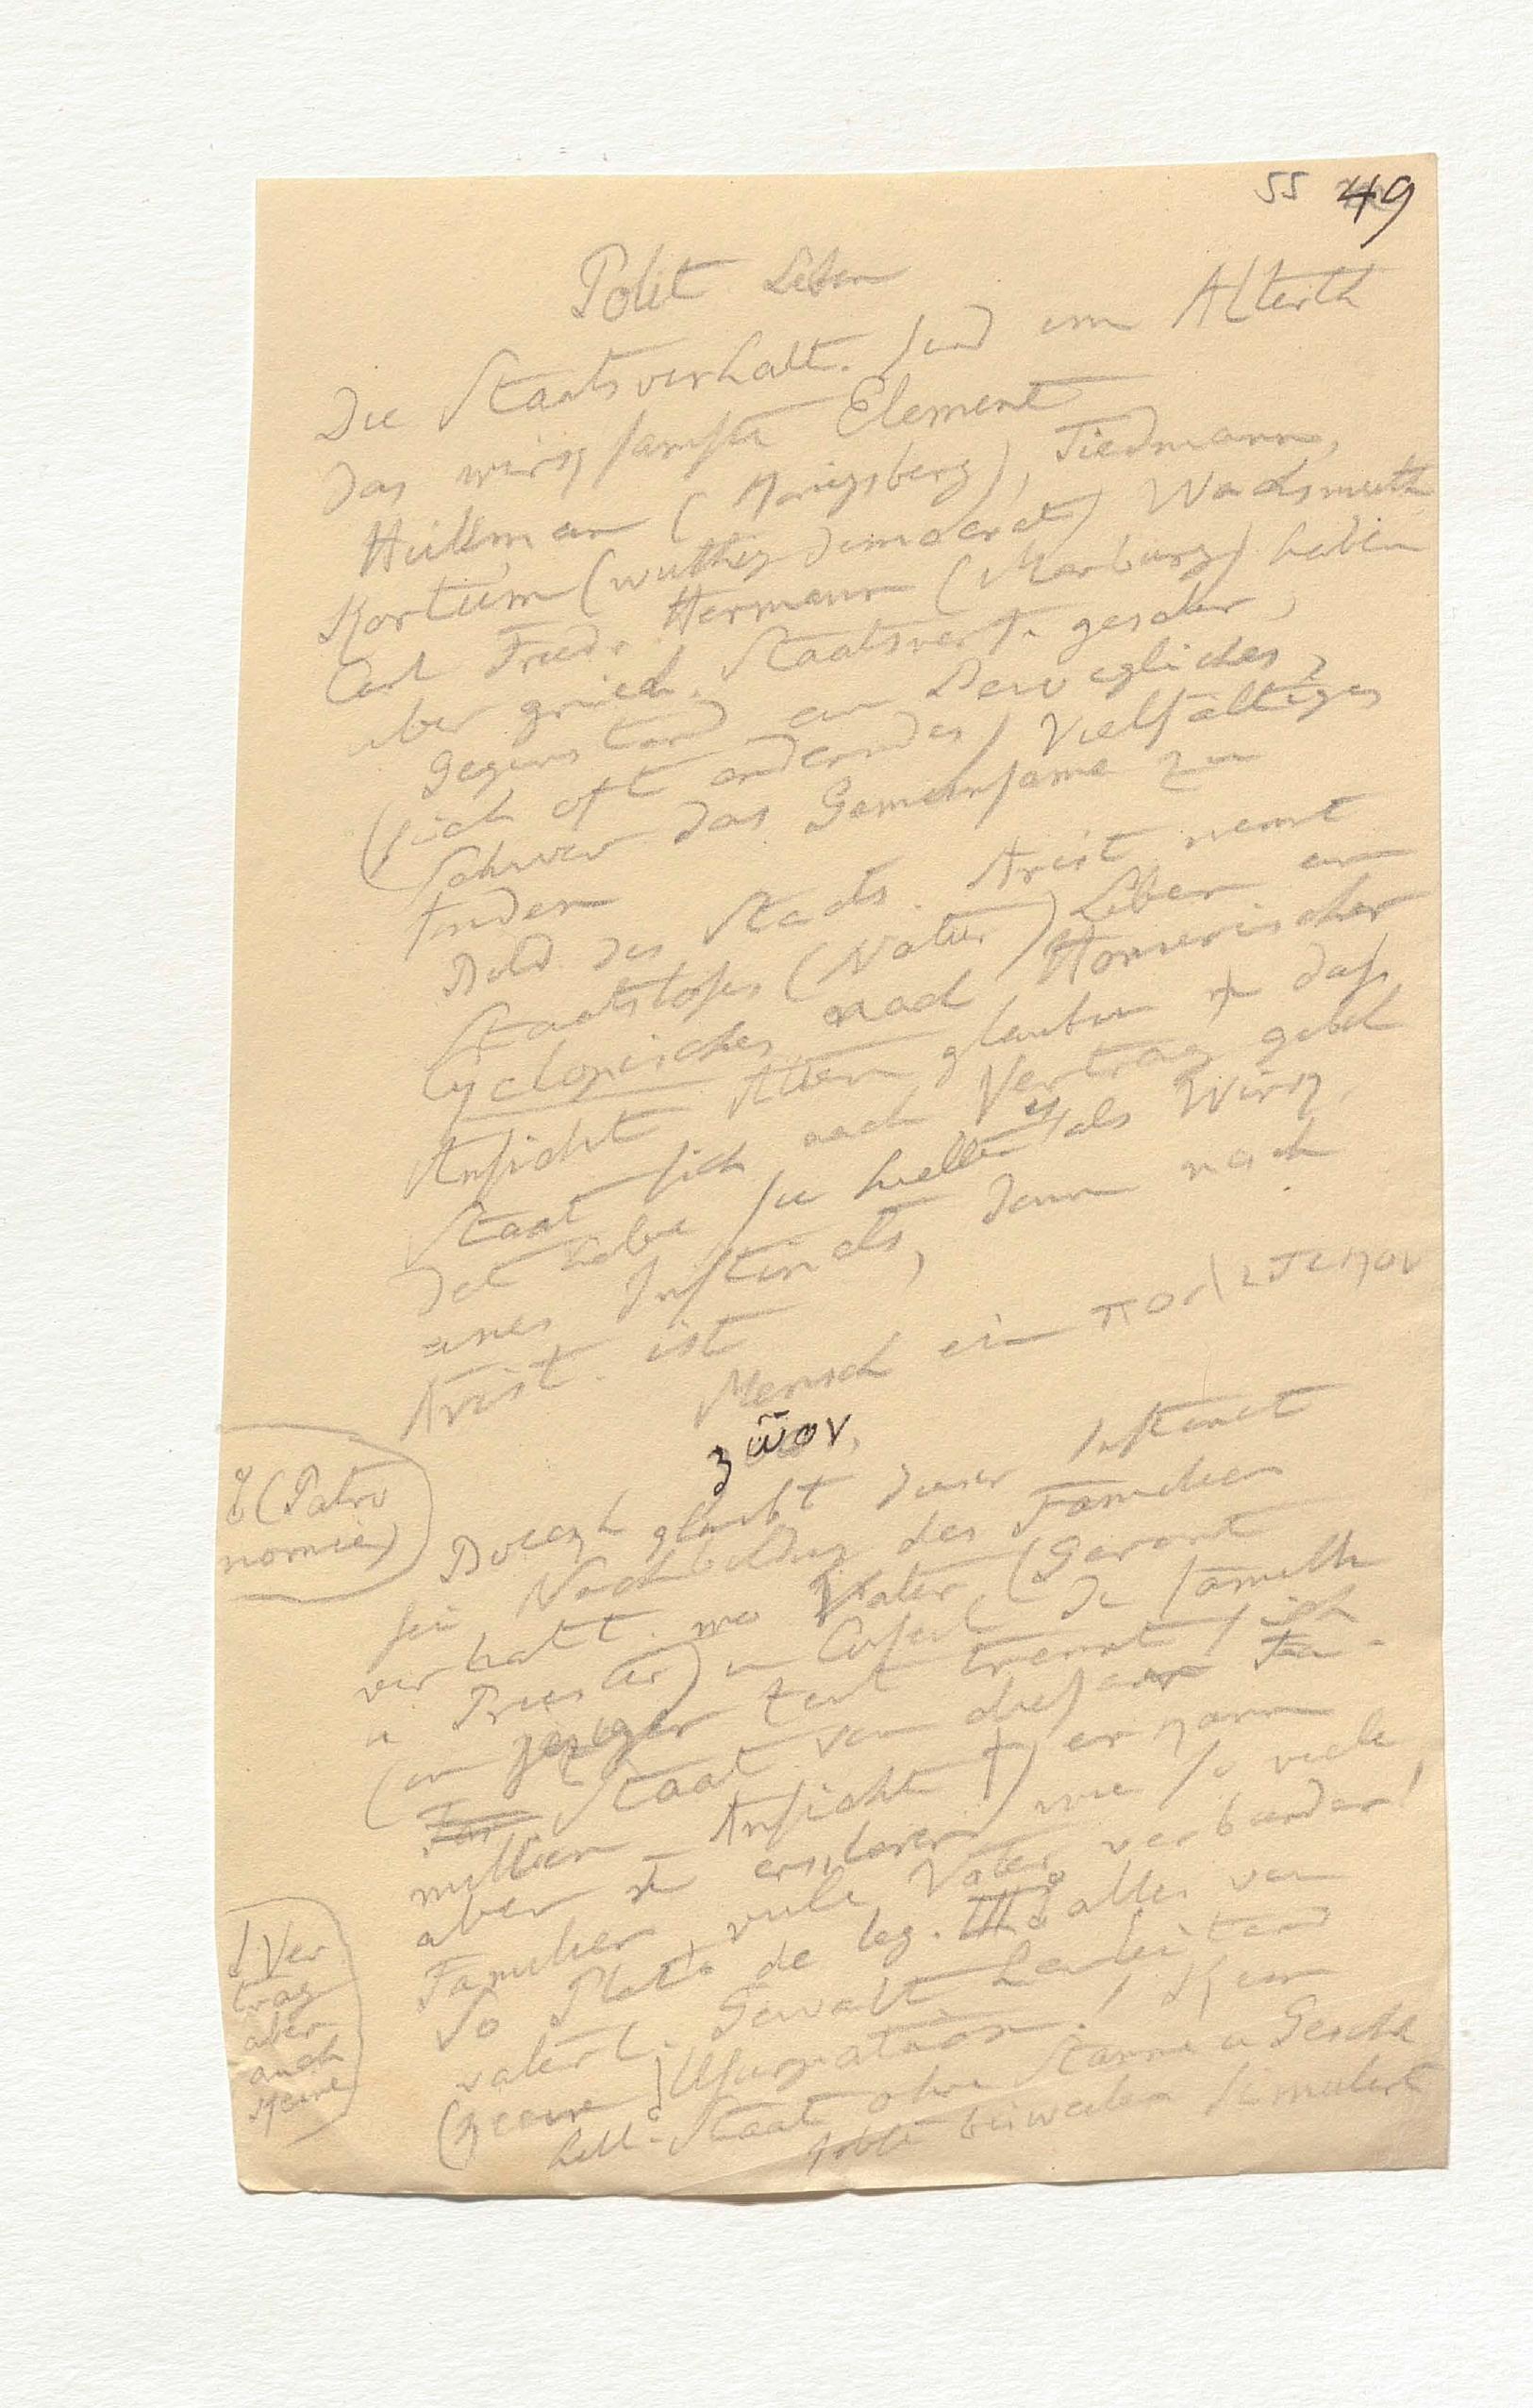 55 49
Polit. Leben
Die Staatsverhält. sind im Alterth
das wirksamste Element
Hüllman (Königsberg), Tiedmann,
Kortüm (wüthig democrat) Wachsmuth
Carl Fried. Hermann (Marburg) haben
über griech. Staatsverf. geschr,
Gegenstand ein Bewegliches,
(sich oft änderndes) Vielfältiges
schwer das Gemeinsame zu
finden
Bild des Staats. Arist nennt
Staatsloses (Natur) Leben ein
Cyclopisches nach Homerischer
Ansicht Alten glaubten # daß
Staat sich nach Vertrag gebil
det habe sie hielten es als Wirk,
eines Instincts, denn nach
Arist. ist
Mensch ein πολιτικον
ζῶον,
Boeckh glaubt dieser Instinct
sei Nachbildung des Familien
verhält. wo Vater (Garant
u Priester)
(in jeziger Zeit trennt sich
Staat von dieser Fa-
millien Ansicht †) er kann
aber # erklären, wie so viele
Familien, viele Väter verbunden!
So Plato de leg. III. alles von
väterl. Gewalt herleitend
(keine Usurpation! Kein
hell. Staat ohne Stämme u Geschl
bisweilen simulirt
(Patro
nomie)
d. Ver
trag
aber
auch